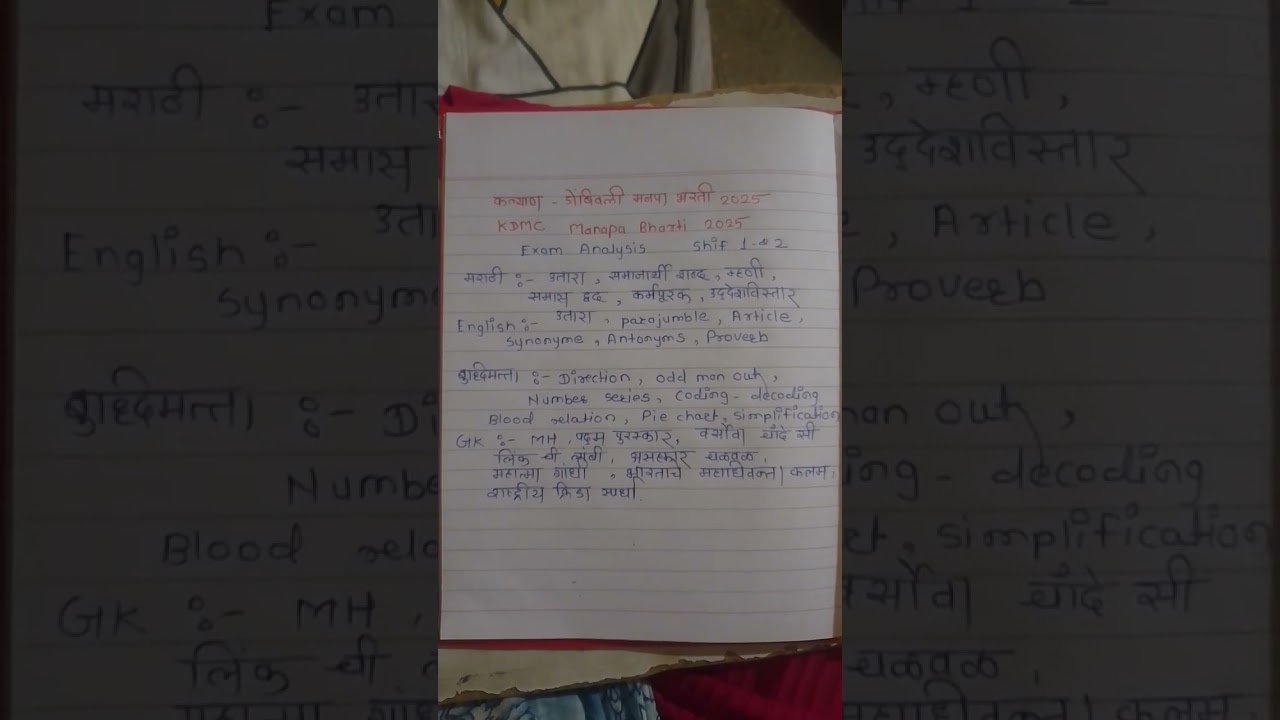 कल्याण - डोंबिवली मनपा भरती 2025
KDMC Manapa Bharti 2025
Exam Analysis Shif 1 & 2
मराठी :- उतारा, समानार्थी शब्द, म्हणी,
समास द्वंद्व, कर्मपूरक, उद्देशविस्तार
English :- उतारा, parajumble, Article,
Synonyme, Antonyms, Proverb
बुध्दिमत्ता :- Direction, odd man out,
Number series, Coding - decoding
Blood relation, Pie chart, Simplification
GK :- MH, पद्म पुरस्कार, वर्सोवा बांद्रे सी
लिंक ची लांबी, असहकार चळवळ,
महात्मा गांधी, भारताचे महाधिवक्ता कलम,
राष्ट्रीय क्रिडा स्पर्धा.